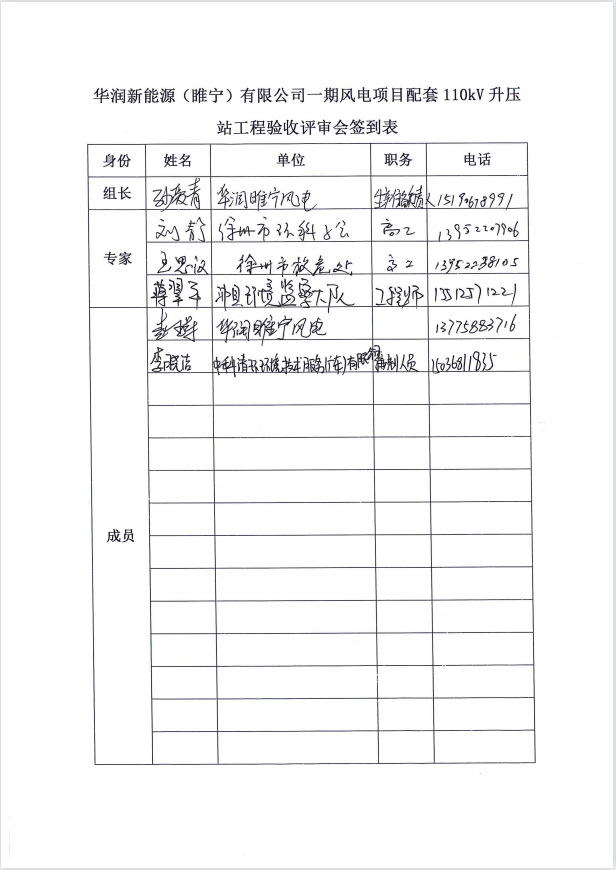 华润新能源（睢宁）有限公司一期风电项目配套 110kV 升压
站工程验收评审会签到表
身份 姓名 单位 职务 电话
组长 孙爱青 华润睢宁风电 负责人
专家
刘韵 徐州市环科学会 高工 13952207906
王思议 徐州市放危处 高工 13952238105
蒋翠平 沛县环境监察大队 工程师 15512571221
华润睢宁风电 13775883716
李珉洁 中科清环环境技术服务 有限公司 编制人员 15036811835
成员